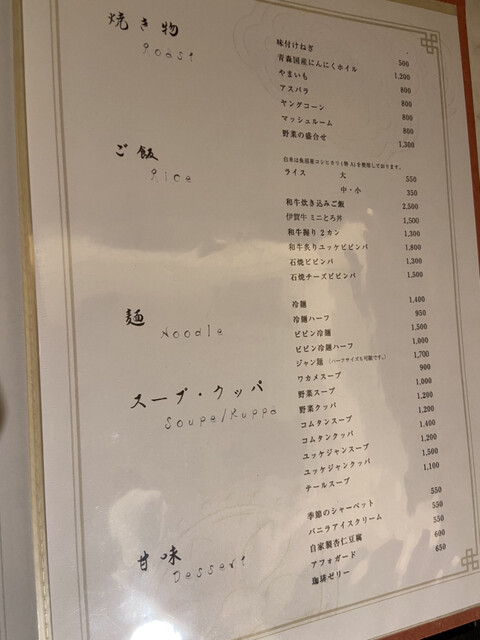 焼き物
Roast
味付けねぎ 500
青森国産にんにくホイル 1,200
やまいも 800
アスパラ 800
ヤングコーン 800
マッシュルーム 800
野菜の盛合せ 1,300
ご飯
Rice
白米は魚沼産コシヒカリ(特A)を使用しております。
ライス 大 550
中・小 350
和牛炊き込みご飯 2,500
伊賀牛 ミニとろ丼 1,500
和牛握り2カン 1,300
和牛炙りユッケビビンバ 1,800
石焼ビビンバ 1,300
石焼チーズビビンバ 1,500
麺
Noodle
冷麺 1,400
冷麺ハーフ 950
ビビン冷麺 1,500
ビビン冷麺ハーフ 1,000
ジャン麺 (ハーフサイズも可能です。) 1,700
スープ・クッパ
Soupe/Kuppa
ワカメスープ 900
野菜スープ 1,000
野菜クッパ 1,200
コムタンスープ 1,200
コムタンクッパ 1,400
ユッケジャンスープ 1,200
ユッケジャンクッパ 1,500
テールスープ 1,100
甘味
Dessert
季節のシャーベット 550
バニラアイスクリーム 550
自家製杏仁豆腐 550
アフォガード 600
珈琲ゼリー 650